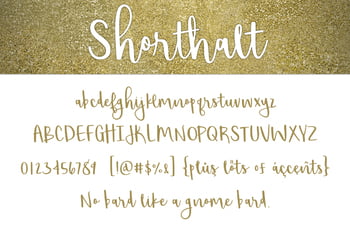 Shorthalt
abcdefghijklmnopqrstuvwxyz
ABCDEFGHIJKLMNOPQRSTUVWXYZ
0123456789 [!@#$%&] {plùs lôts of äççents}
No bard like a gnome bard.